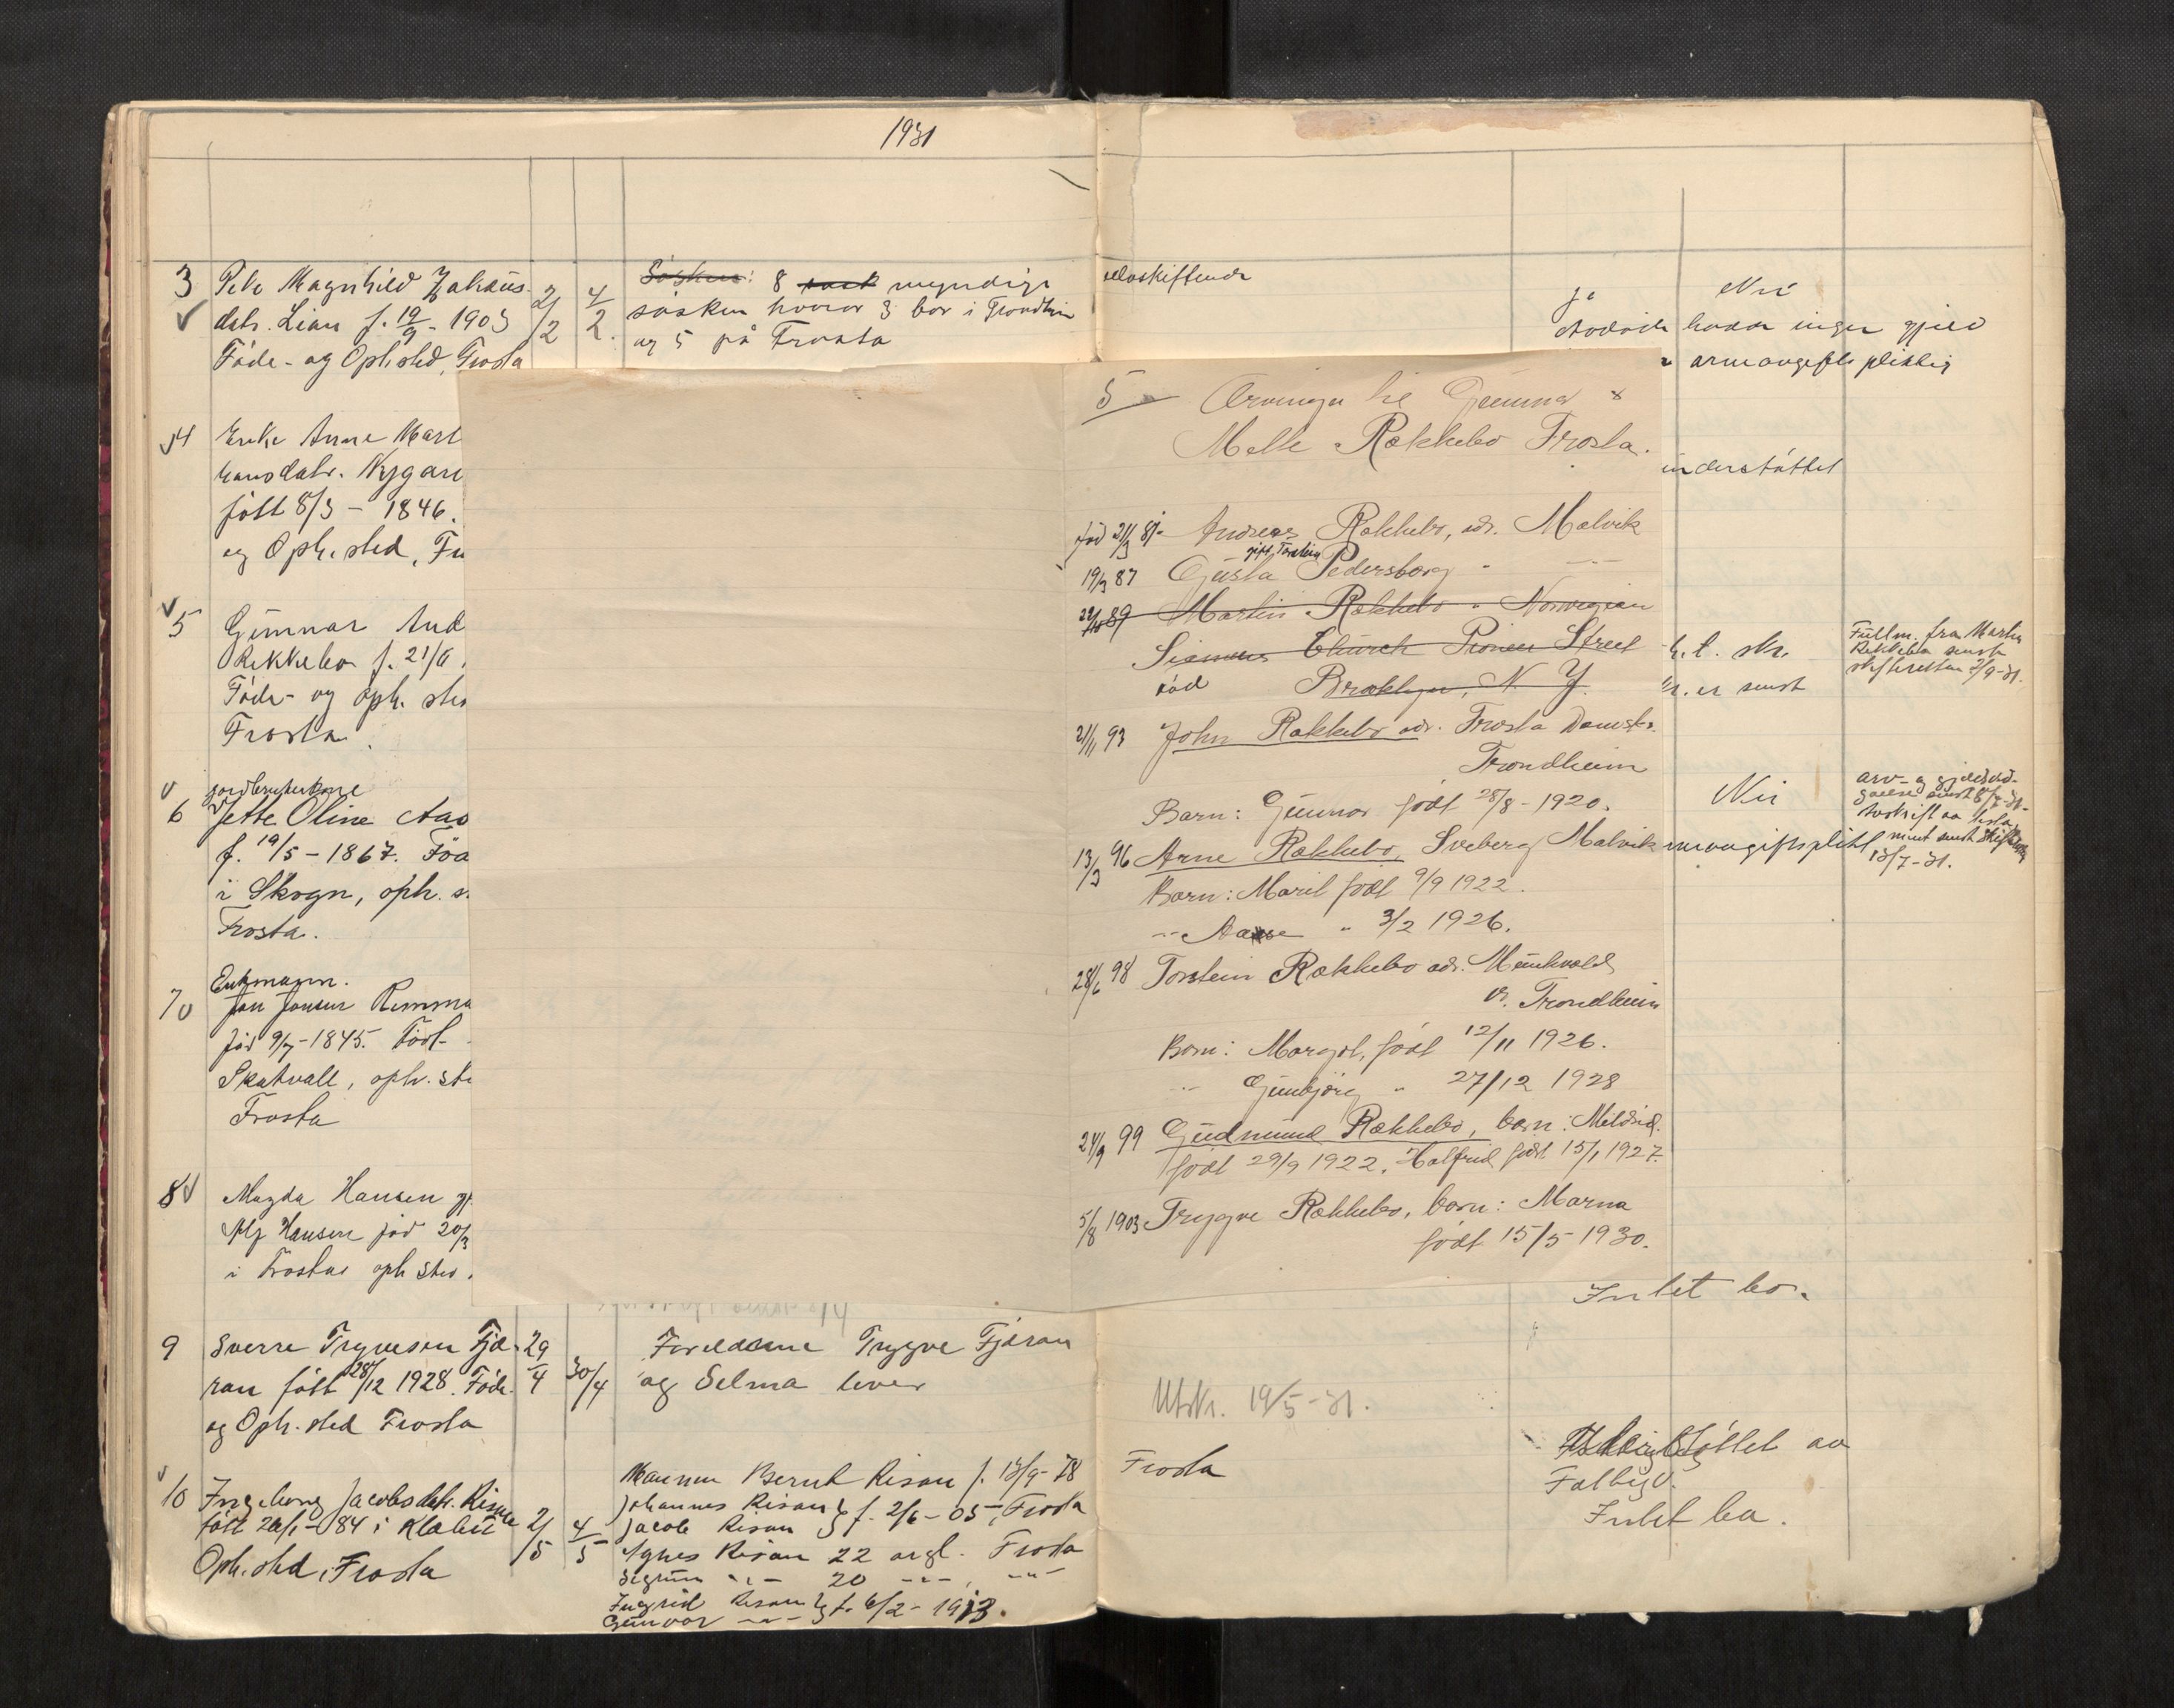 1931
3 Pike Magnhild Johans-
datr. Lian f. 19/9 - 1903
Føde- og Oph. sted, Frosta
2/2
4/2
Søsken: 8 myndige
søsken hvorav 3 bor i Trondhm
og 5 på Frosta
selvskiftende
Ja
Nei
Avdøde hadde ingen gjeld
arveavgifts pliktig
4 Enke Anne Mart
hansdatr. Nygard
født 8/3 - 1846.
og Oph. sted, Fr
understøttet
5 Gunnar And
Rekkebo f. 21/6
Føde- og oph. ste
Frosta
t. skr.
er sendt
Fullm. fra Martin
Rekkebo sendt
skifteretten 2/9-31.
jordbrukerkone
6 Jette Oline Aas
f. 19/5 - 1867. Fød
i Skogn, oph. s
Frosta.
Nei
arv- og gjelds
sendt
Avskrift av testa
ment sendt
13/7-31.
arveavgiftsplikt
Enkmann.
7 Jon Jonsen Remma
fød 9/7-1845. Født
Skatvall, oph. ste
Frosta
8 Magda Hansen g
Alf Hansen fød 20/3
i Frosta oph sted
Intet bo.
5 Arvinger til Gunnar &
Mette Rækkebo Frosta.
fød 21/3 8 Andreas Rækkebo, adr. Malvik
gift Torstein
19/3 87 Gusta Pedersborg " —"—
89 Martin Rækkebo " Norwegian
Siemens Church Pioneer Street
død Brooklyn, N. Y.
21/11 93 John Rækkebo adr. Frosta Dampsk.
Trondheim
Barn: Gunnar født 28/8 - 1920.
13/3 96 Arne Rækkebo, Sveberg Malvik
Barn: Marit født 9/9 1922.
—"— Aase " 3/2 1926.
28/6 98 Torstein Rækkebo adr. Munkvold
v. Trondheim
Barn: Margot, født 12/11 1926.
—"— Gunbjörg " 27/12 1928
24/9 99 Gudmund Rækkebo, barn: Mildrid.
født 29/9 1922, Halfrid født 15/1 1927.
5/8 1903 Trygve Rækkebo, barn: Marna
født 15/5 1930.
9 Sverre Trygvesen Fjæ-
ran født 28/12 1928. Føde-
og Oph. sted Frosta
29/4
30/4
Foreldrene Trygve Fjæran
og Selma lever
Utskr. 19/5-31.
10 Ingeborg Jacobsdatr. Risan
født 26/1-84 i Klæbu
Oph. sted, Frosta
2/5
4/5
Mannen Bernt Risan f. 13/9-78
Johannes Risan
Jacob Risan } f. 2/6-05, Frosta
Agnes Risan 22 årgl. Frosta
Sigrun —"— 20 —"—, —"—
Ingrid Risan
Gunvor —"— } f. 6/2-1913.
Frosta
av
Fatt
Intet bo.